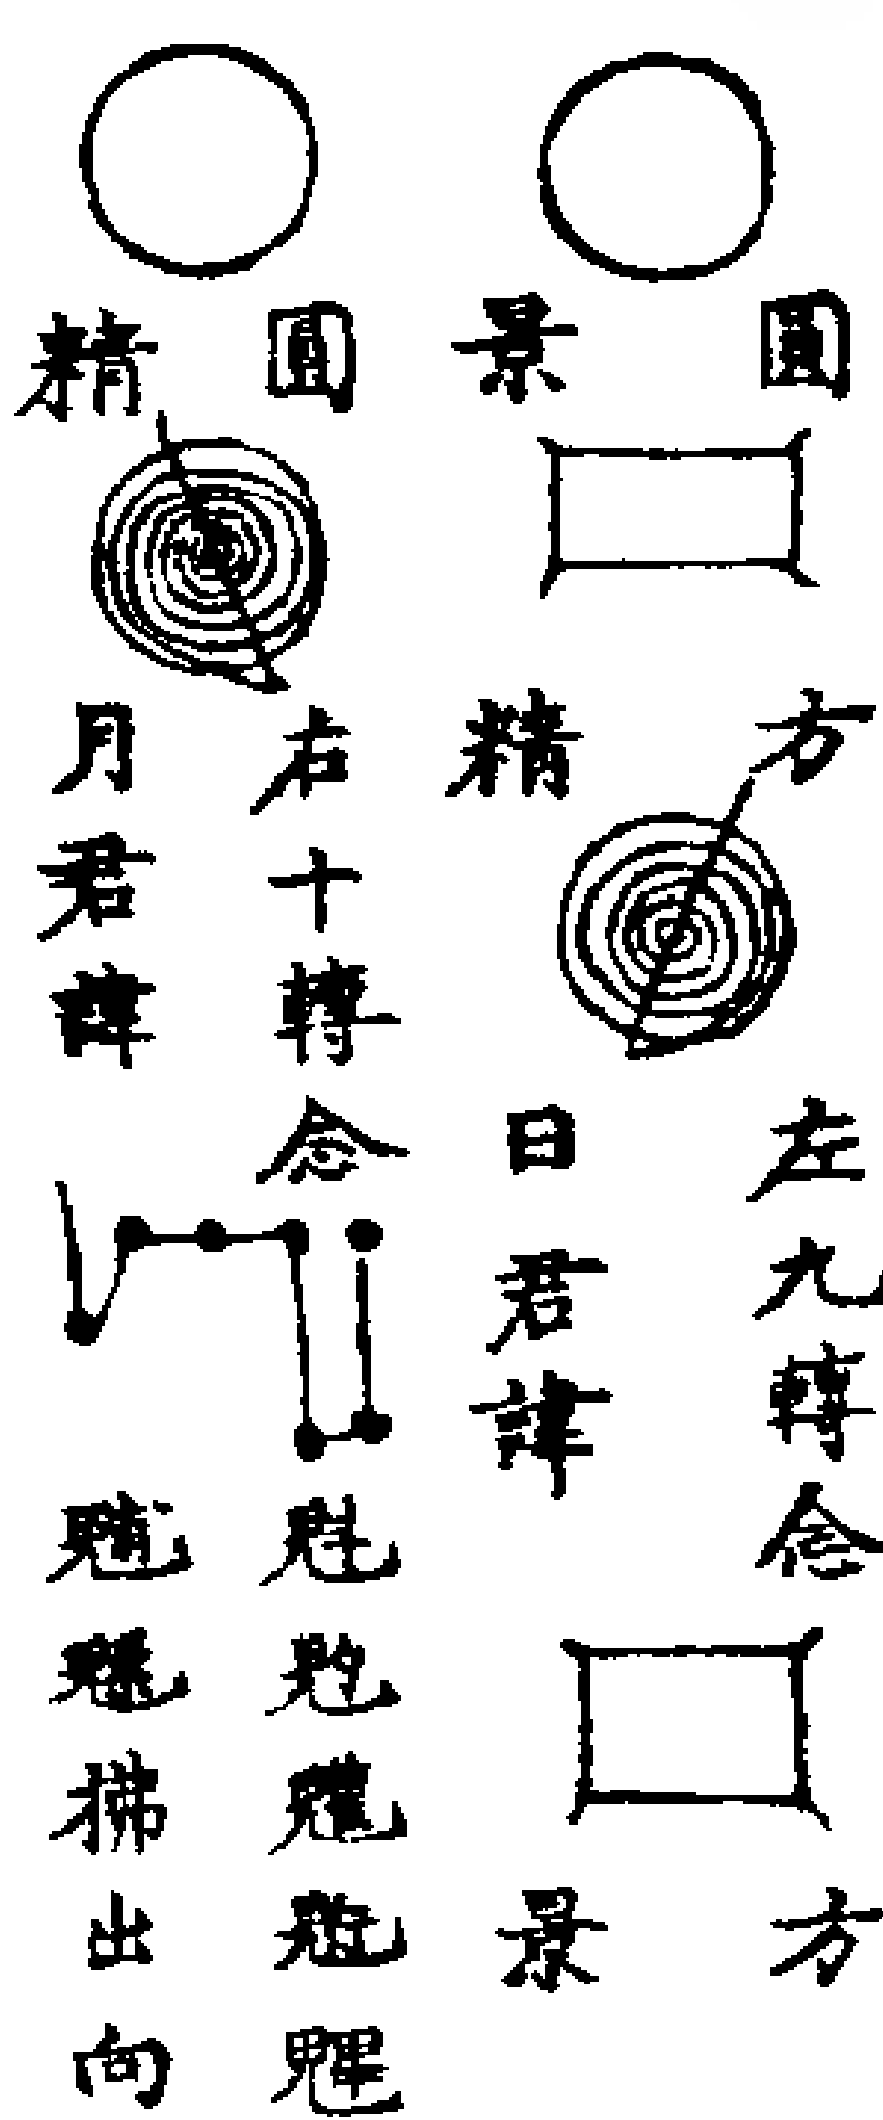 圓景
方精
左九轉念
日君諱
方景
圓精
右十轉念
月君諱
魁
拂出向